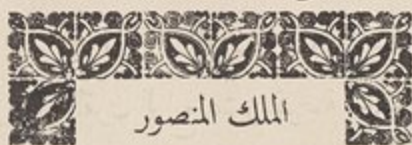 الملك المنصور